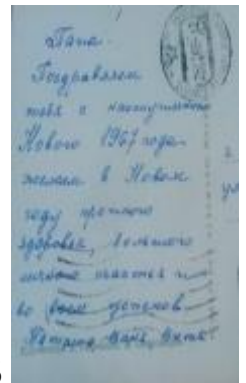 Папа.
Поздравляем
тебя с наступлением
Нового 1967 года
желаем в Новом
году крепкого
здоровья, большого
личного счастья и
во всем успехов
Ваня, Витя.